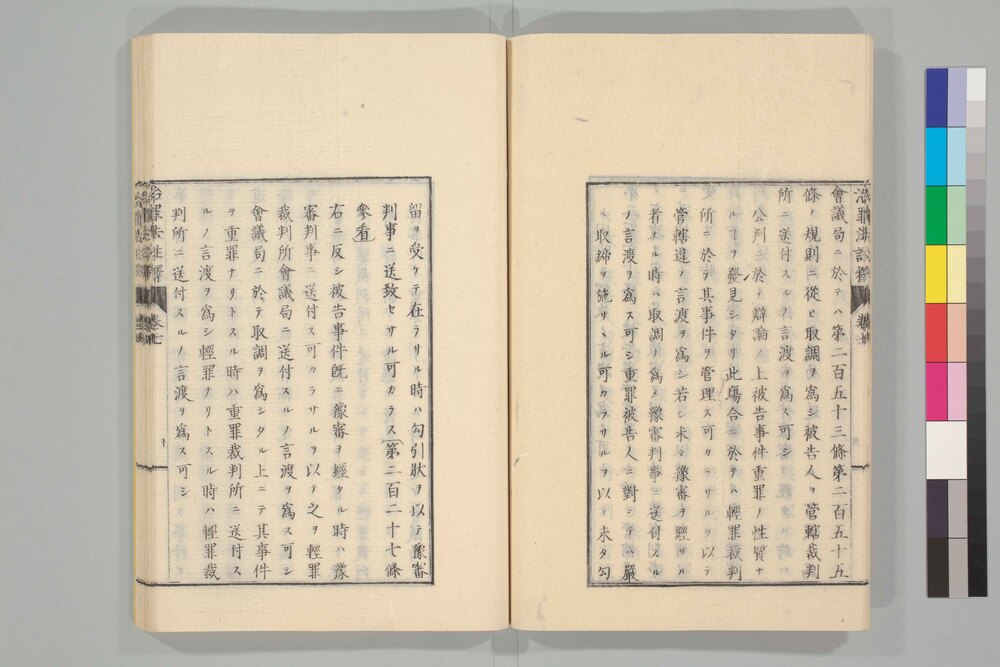 會議局ニ於テハ第二百五十三條第二百五十五
條ノ規則ニ從ヒ取調ヲ爲シ被告人ヲ管轄裁判
所ニ送付スルノ言渡ヲ爲ス可シ
公判ニ於テ辯論ノ上被告事件重罪ノ性質ナ
ルヿヲ發見シタリ此塲合ニ於テハ輕罪裁判
所ニ於テ其事件ヲ管理ス可カラサルヲ以テ
管轄違ノ言渡ヲ爲シ若シ未タ豫審ヲ經サル
者ナル時ハ取調ノ爲メ豫審判事ニ送付スル
ノ言渡ヲ爲ス可シ重罪被告人ニ對シテハ嚴
シ取締ヲ施サヽル可カラサルヲ以テ未タ勾
留ヲ受ケテ在ラサル時ハ勾引狀ヲ以テ豫審
判事ニ送致セサル可カラス(第二百二十七條
參看)
右ニ反シ被告事件既ニ豫審ヲ經タル時ハ豫
審判事ニ送付ス可カラサルヲ以テ之ヲ輕罪
裁判所會議局ニ送付スルノ言渡ヲ爲ス可シ
會議局ニ於テ取調ヲ爲シタル上ニテ其事件
ヲ重罪ナリトスル時ハ重罪裁判所ニ送付ス
ルノ言渡ヲ爲シ輕罪ナリトスル時ハ輕罪裁
判所ニ送付スルノ言渡ヲ爲ス可シ
治罪法註釋 卷七